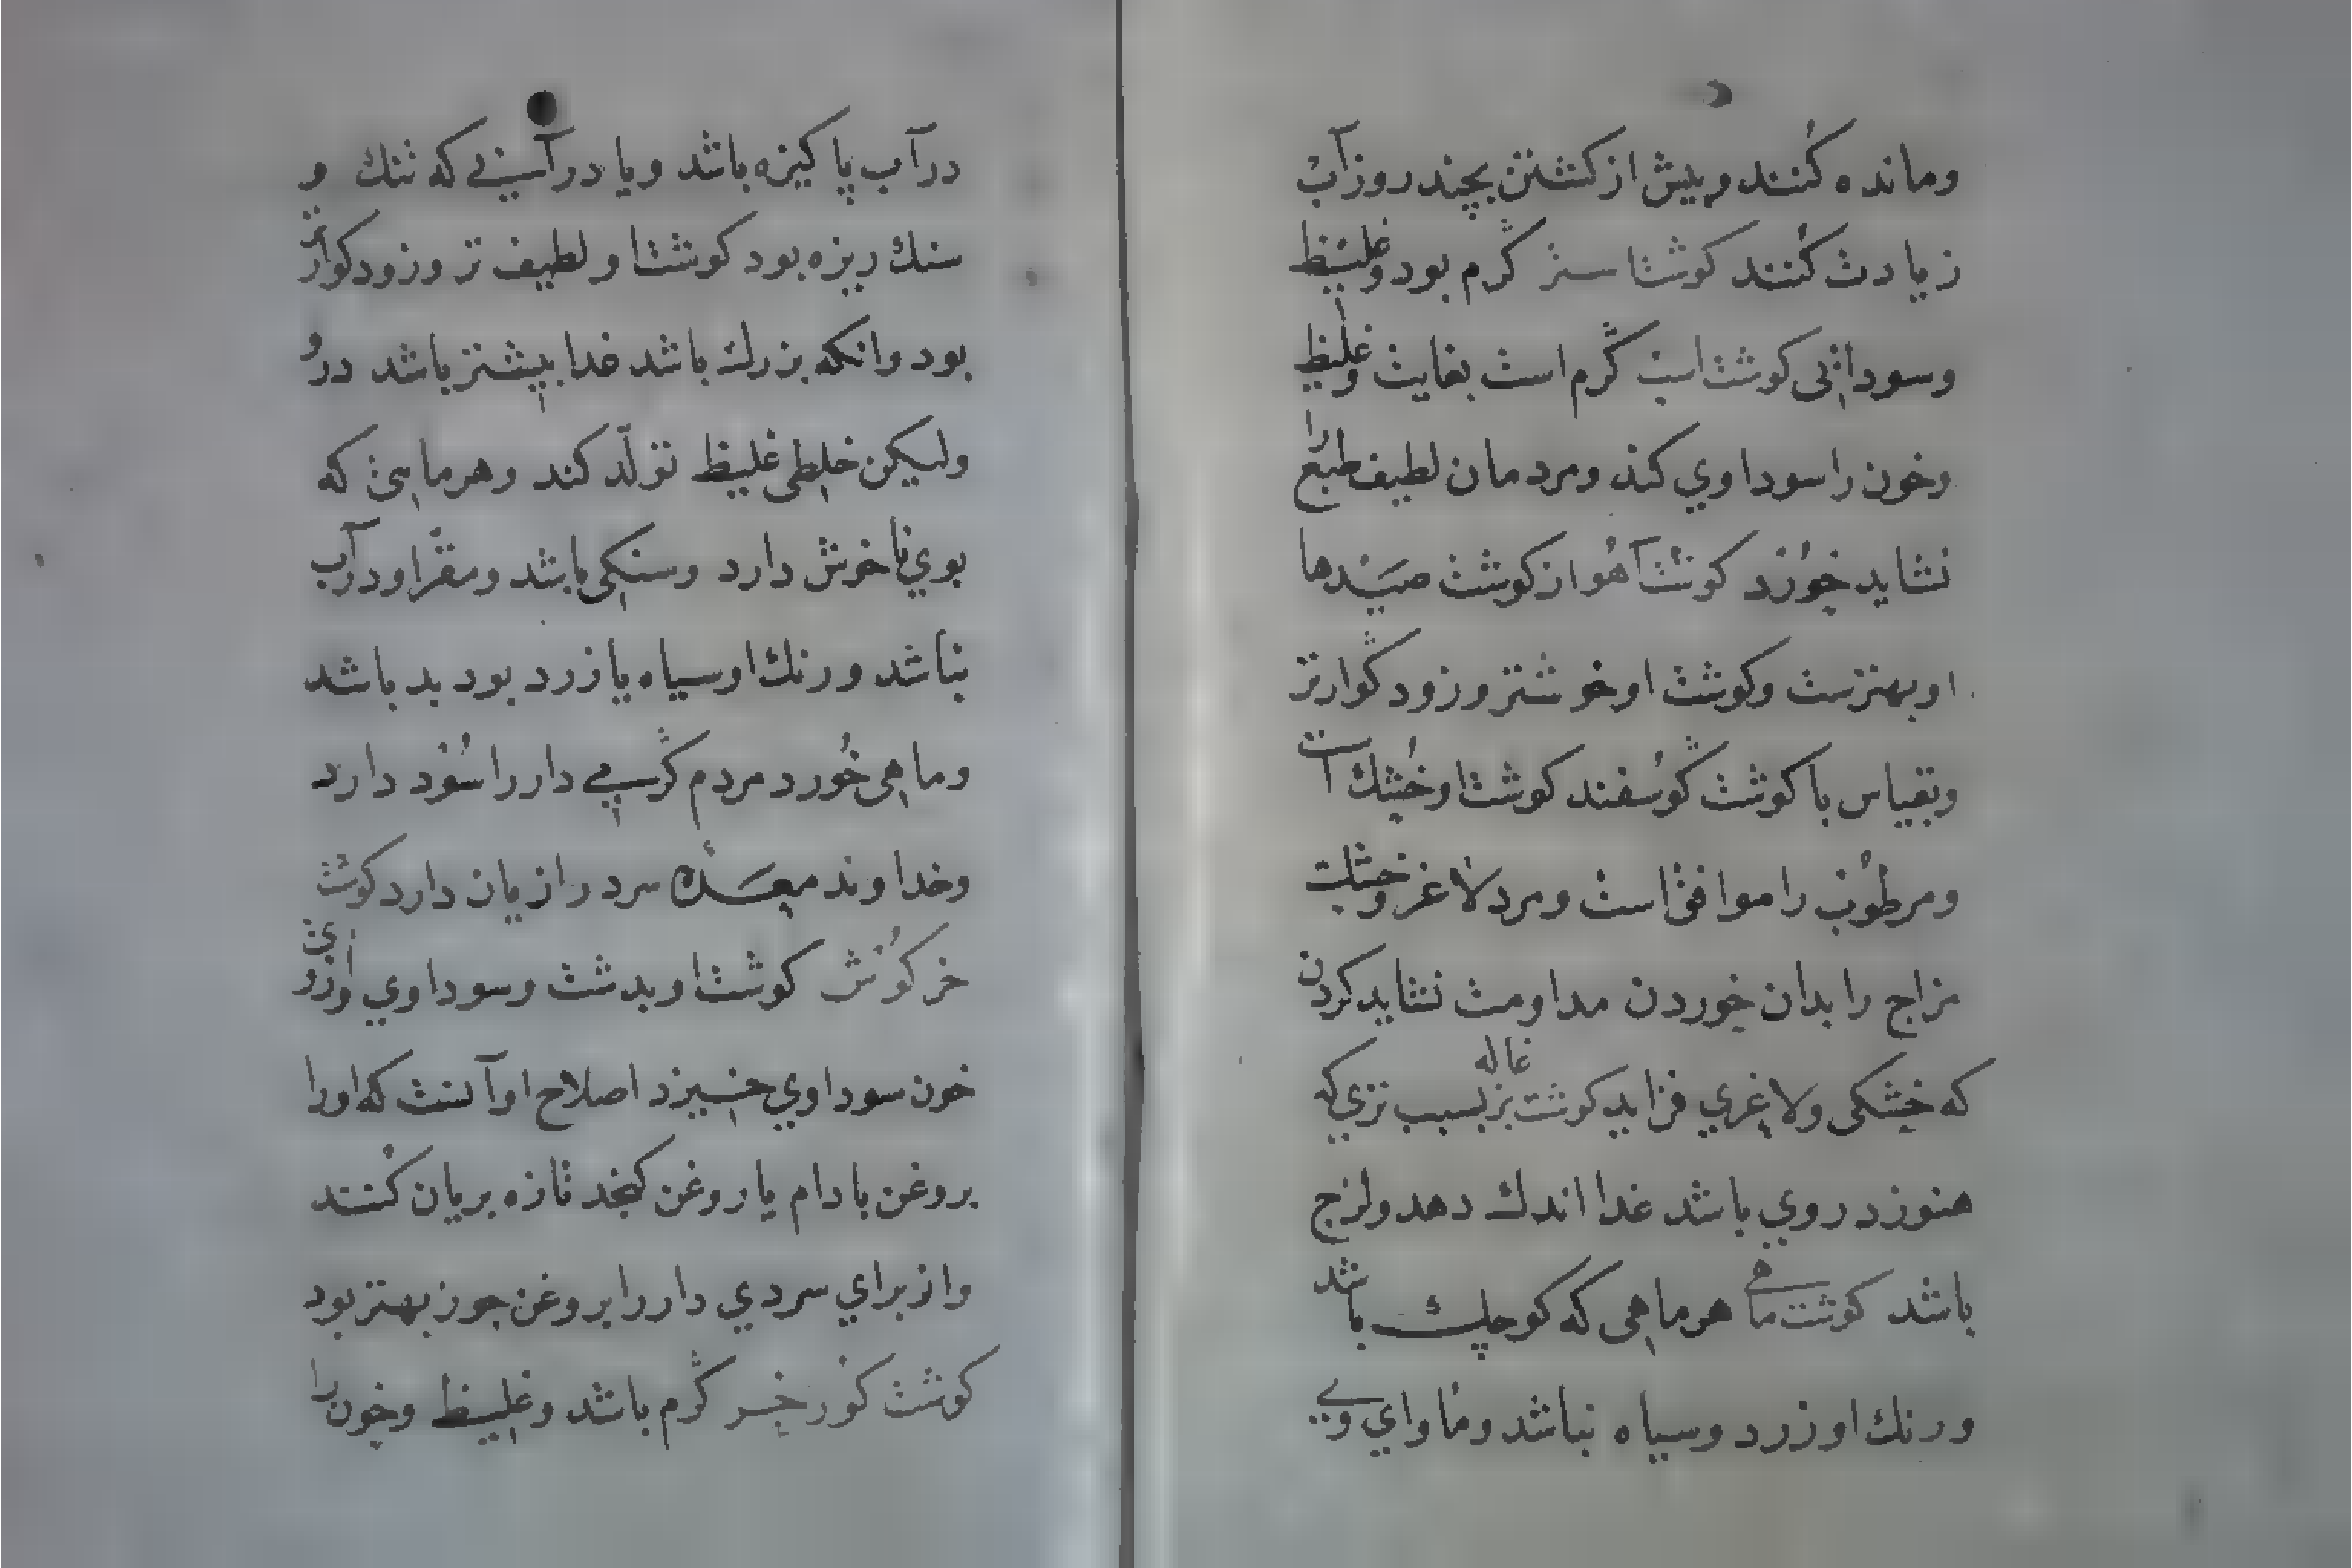 ومانده كُنند وبيش از كشتن بچند روز آبْ
زيادت كُنند كوشت استر ڭرم بود وغليظ
وسودايى كوشت اسبْ ڭرم است بغايت وغليظ
وخون را سوداوي كند ومردمان لطيف طبع را
نشايد خوُرْد كوشت آهُو از كوشت صَيْدها
او بهترست وكوشت او خوشتر وزود ڭوارتر
وبقياس با كوشت ڭوُسفند كوشت او خُشك است
ومرطوُبْ را موافق است ومرد لاغر وخشك
مزاج را بدان خوردن مداومت نشايد كردن
كه خشكى ولاغري فزايد كوشت بزغاله بسبب تري كه
هنوز در وي باشد غدا اندك دهد ولزج
باشد كوشت ماهي هر ماهى كه كوچك باشد
ورنك او زرد وسياه نباشد ومأواي وي
در آب پاكيزه باشد ويا در آبى كه تنك و
سنك ريزه بود كوشت او لطيف تر وزود كوارتر
بود وانكه بزرك باشد غدا بيشتر باشد درو
وليكن خلطى غليظ تولّد كند وهر ماهئ كه
بوي ناخوش دارد وسنكى باشد ومقرّ او در آب
نباشد ورنك او سياه يا زرد بود بد باشد
وماهى خُورد مردم ڭرمي دار را سُوْد دارد
وخداوند معَده سرد را زيان دارد كوشت
خركُوْش كوشت او بدشت وسوداوي وازوي
خون سوداوي خيزد اصلاح او آنست كه اورا
بروغن بادام يا روغن كنجد تازه بريان كُنند
واز براي سردي دار را بروغن جوز بهتر بود
كوشت كوْرخر ڭرم باشد وغليظ وخون را